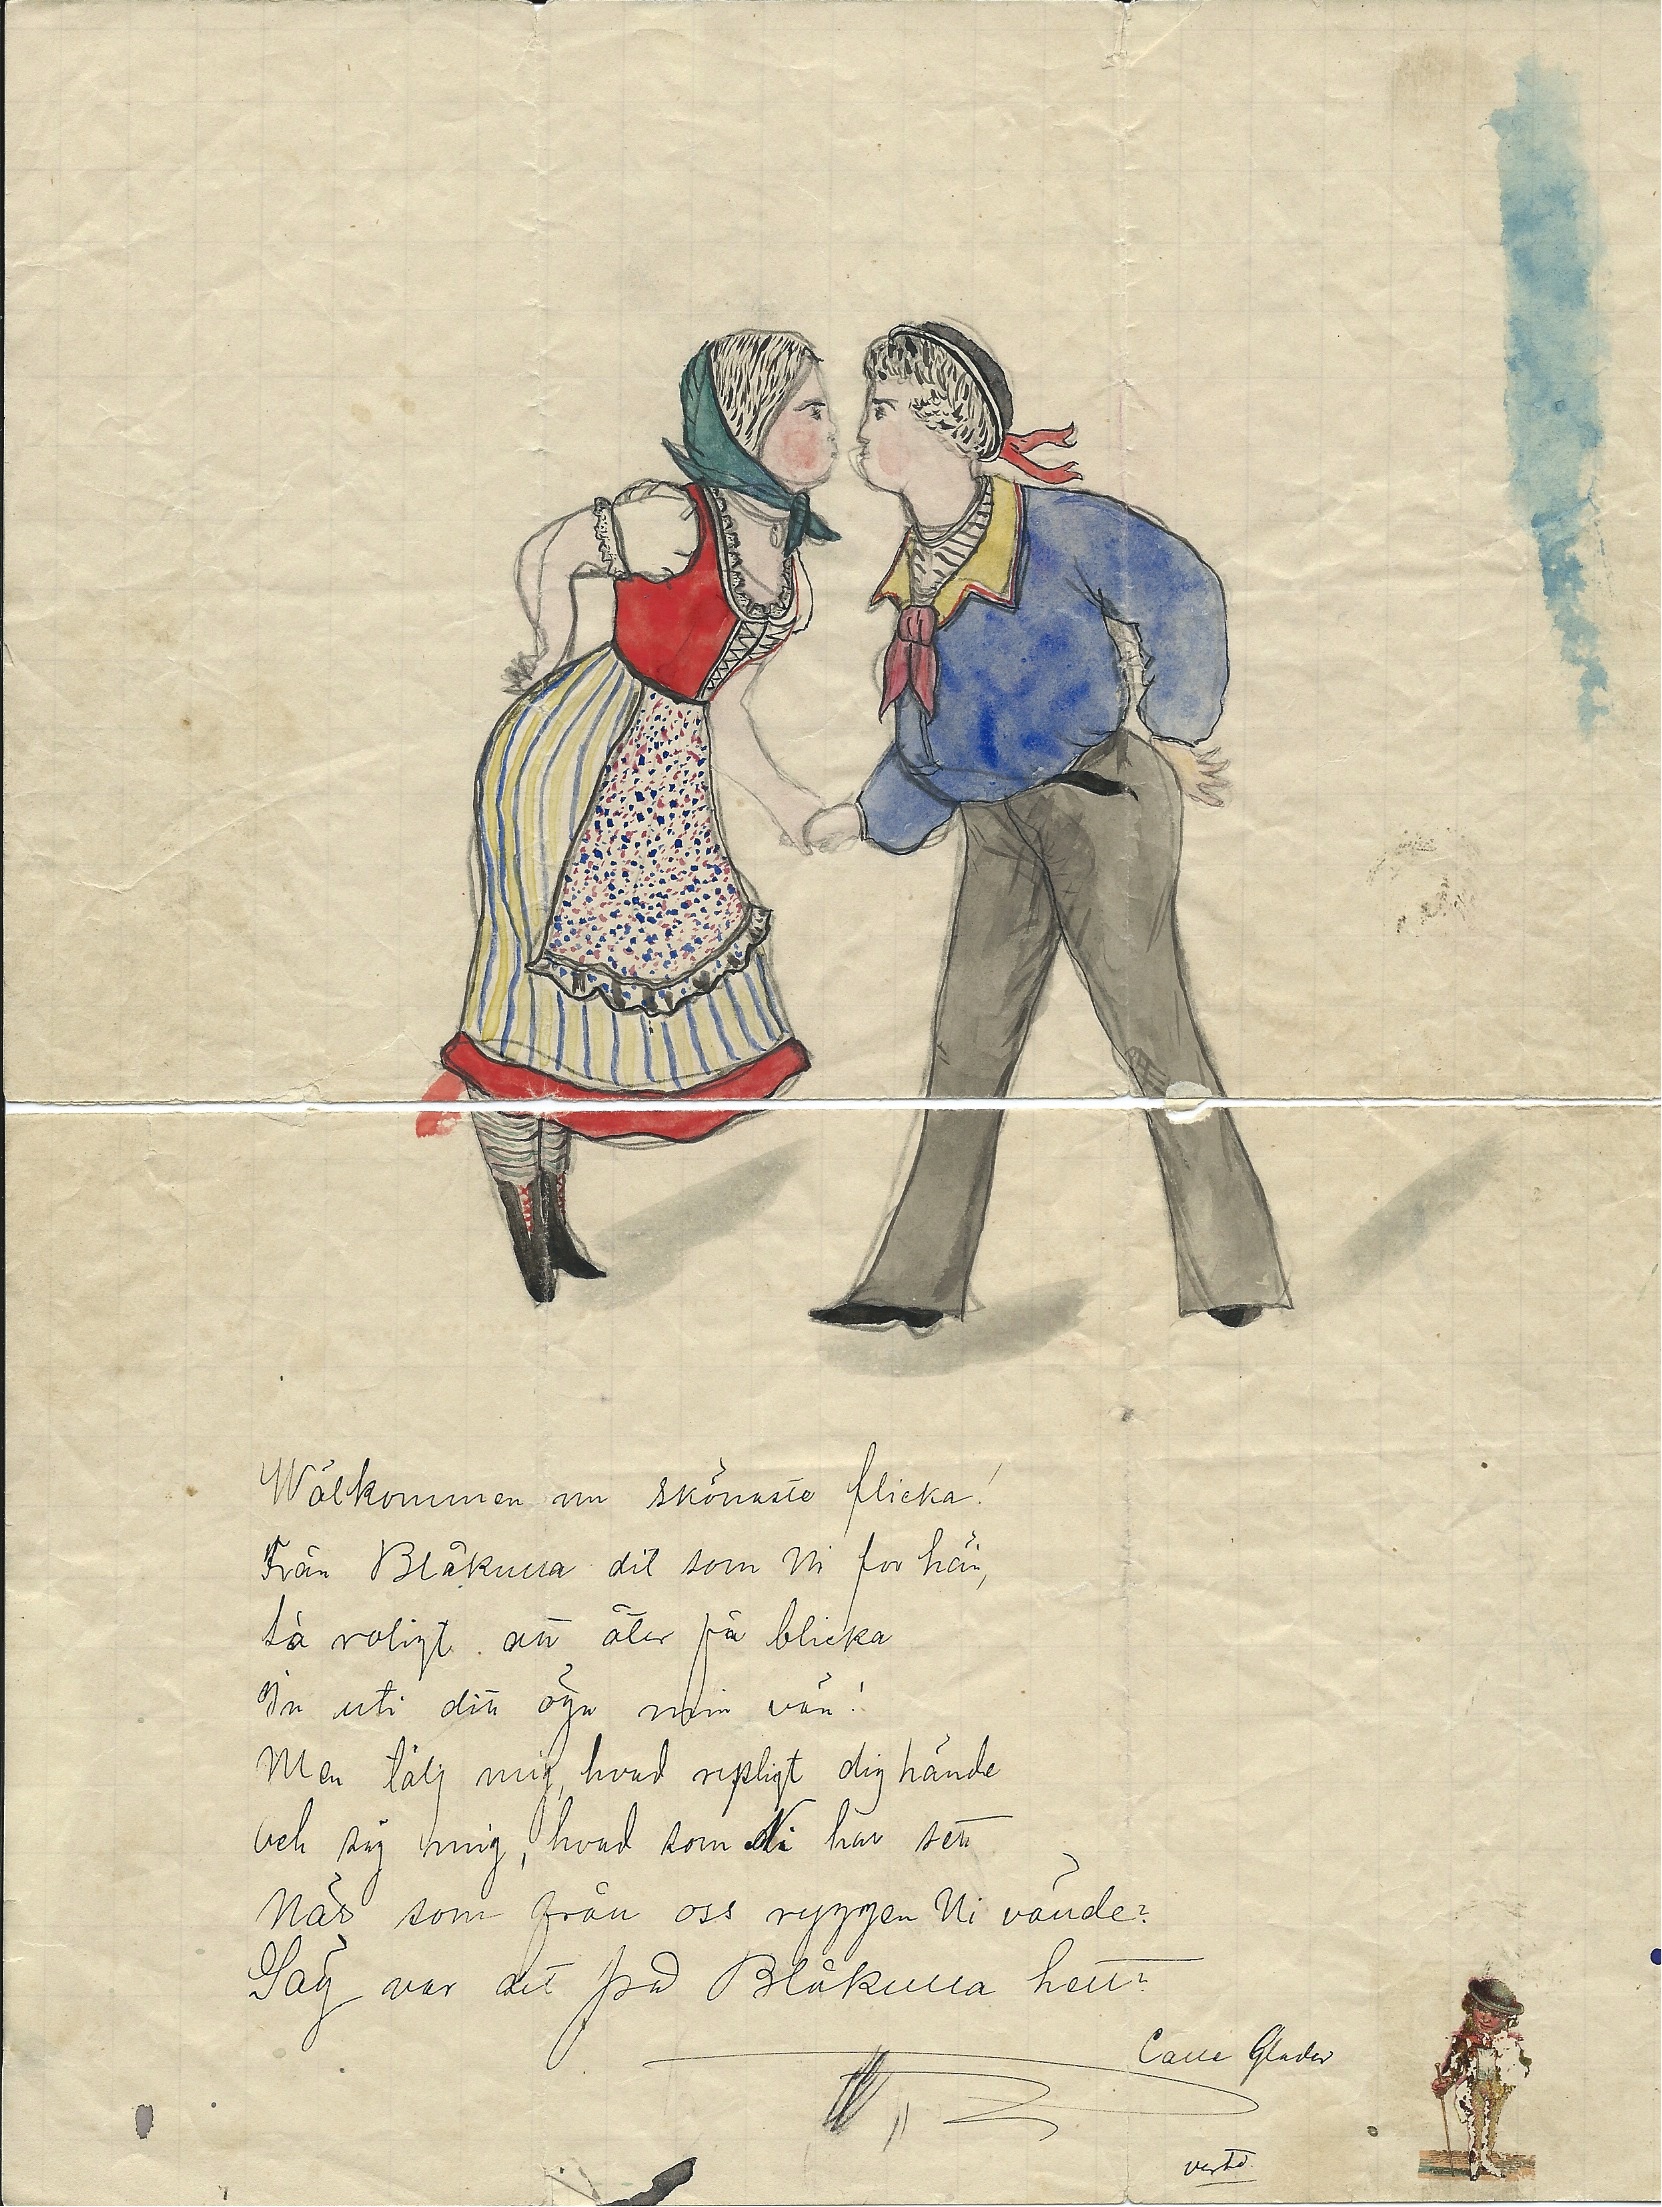 Wälkommen nu skönaste flicka!
Från Blåkulla dit som Ni for hän,
så roligt att åter få blicka
In uti ditt öga min vän!
Men tälj mig, hvad rysligt dig hände
och säg mig, hvad som Ni har sett
När som från oss ryggen Ni vände?
Säg var det på Blåkulla hett?
Calle Glader
verte